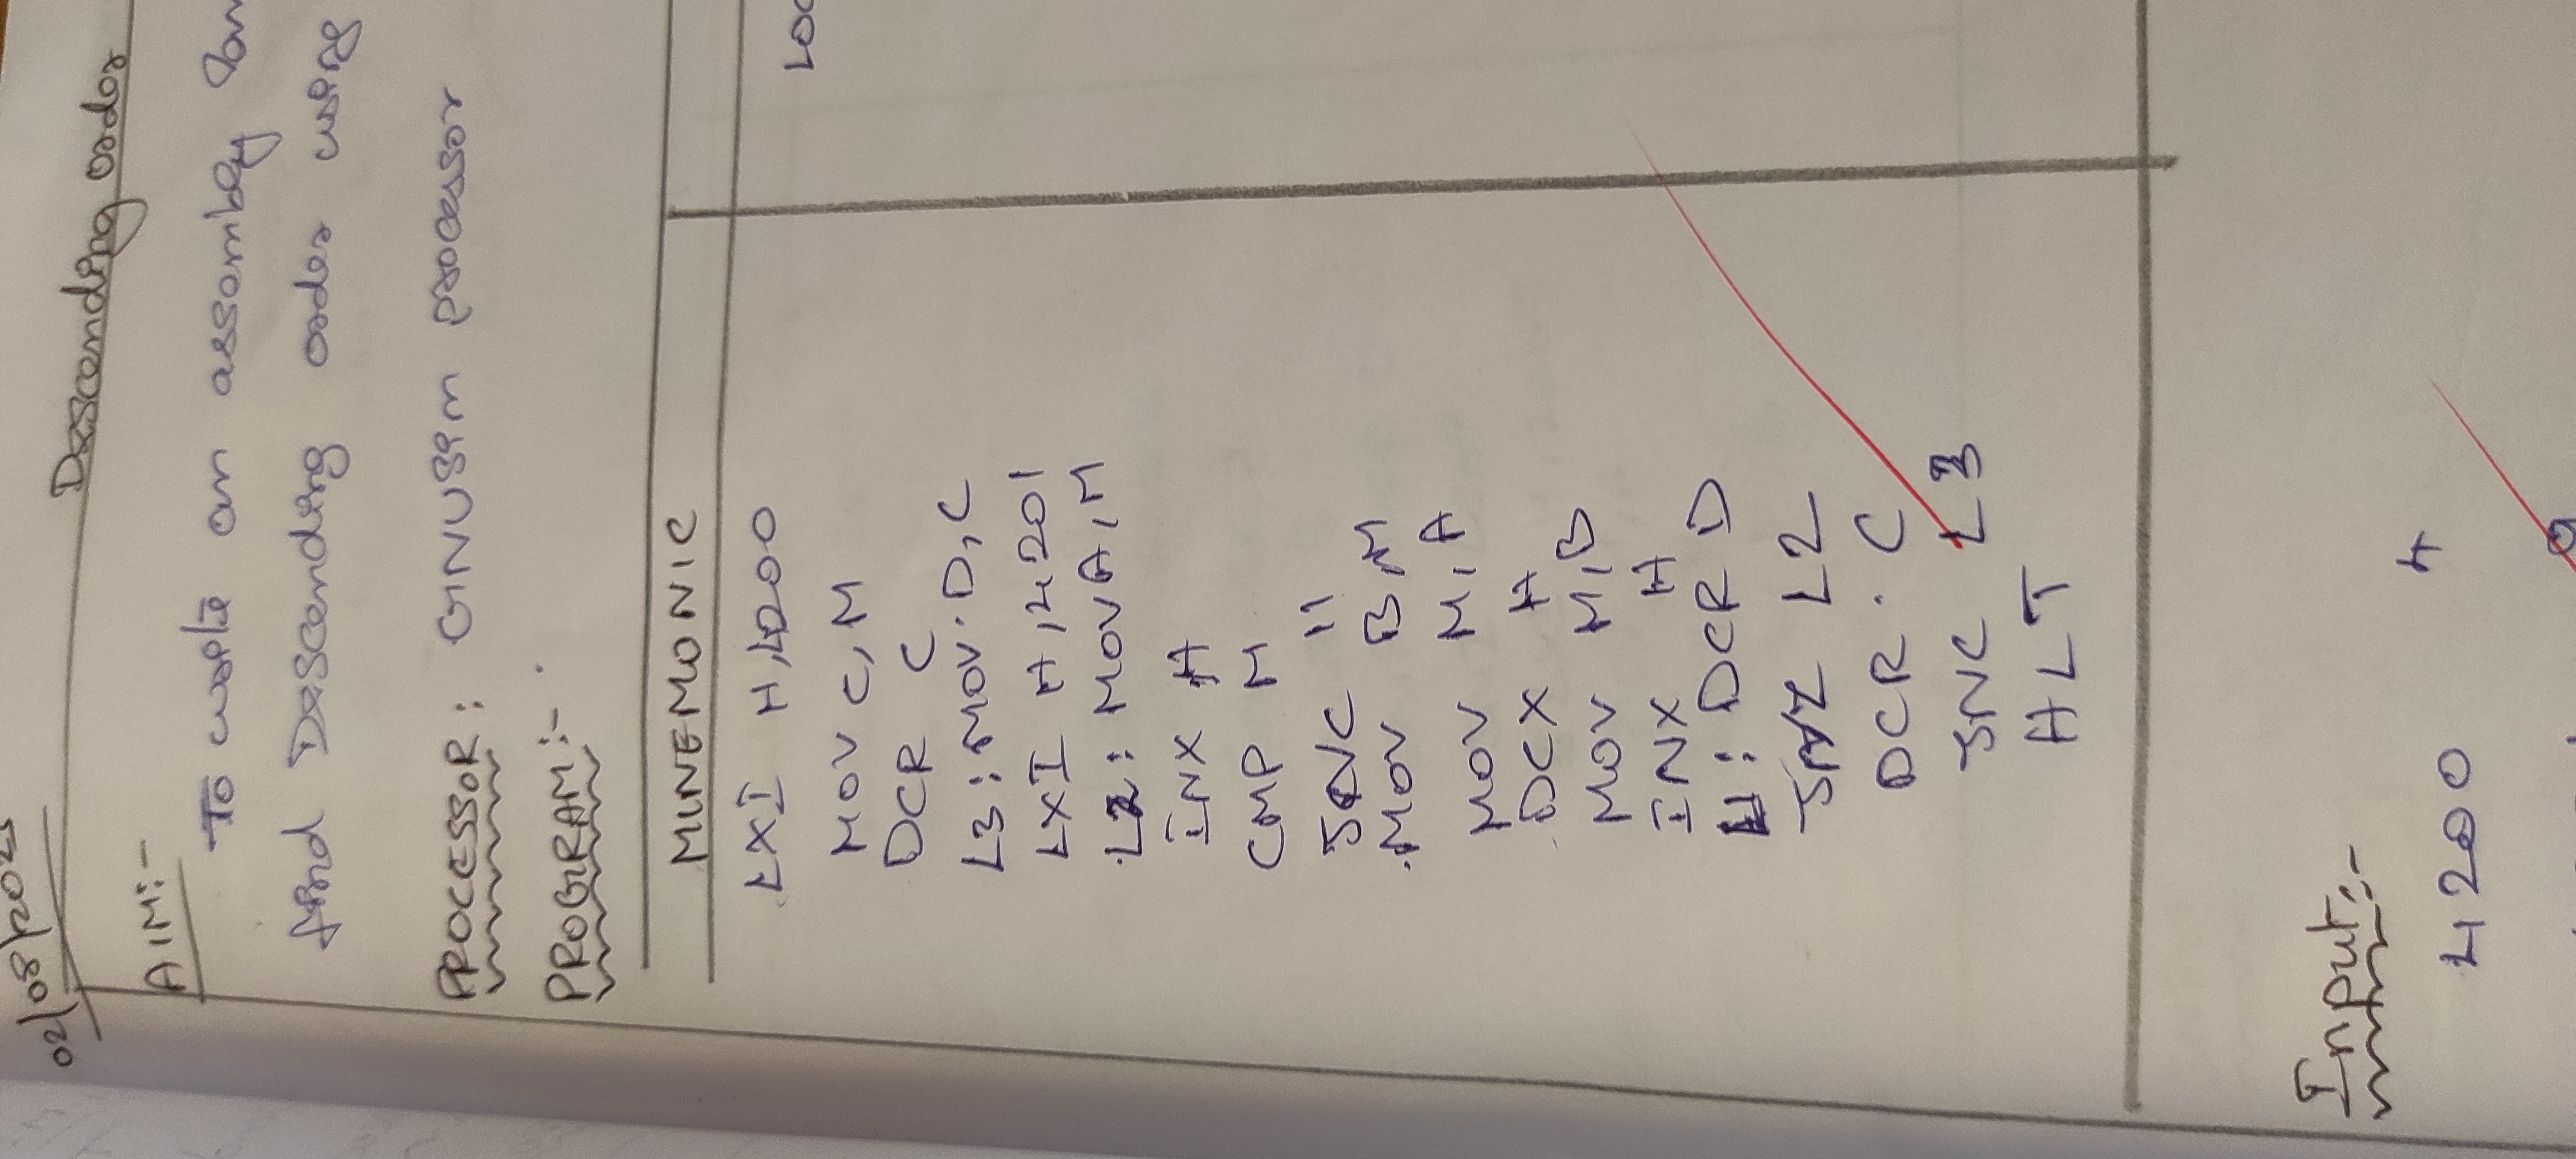 02/08/2023
Descending order
AIM:-
To write an assembly lan
find Descending order using
PROCESSOR: GNUSim processor
PROGRAM:-
MINEMONIC
LXI H,4200
LOC
MOV C,M
DCR C
L3:MOV D,C
LXI H,4201
L2: MOV A,M
INX H
CMP M
JNC L1
MOV B,M
MOV M,A
DCX H
MOV M,B
INX H
L1: DCR D
JNZ L2
DCR C
JNC L3
HLT
Input:-
4200 4
9